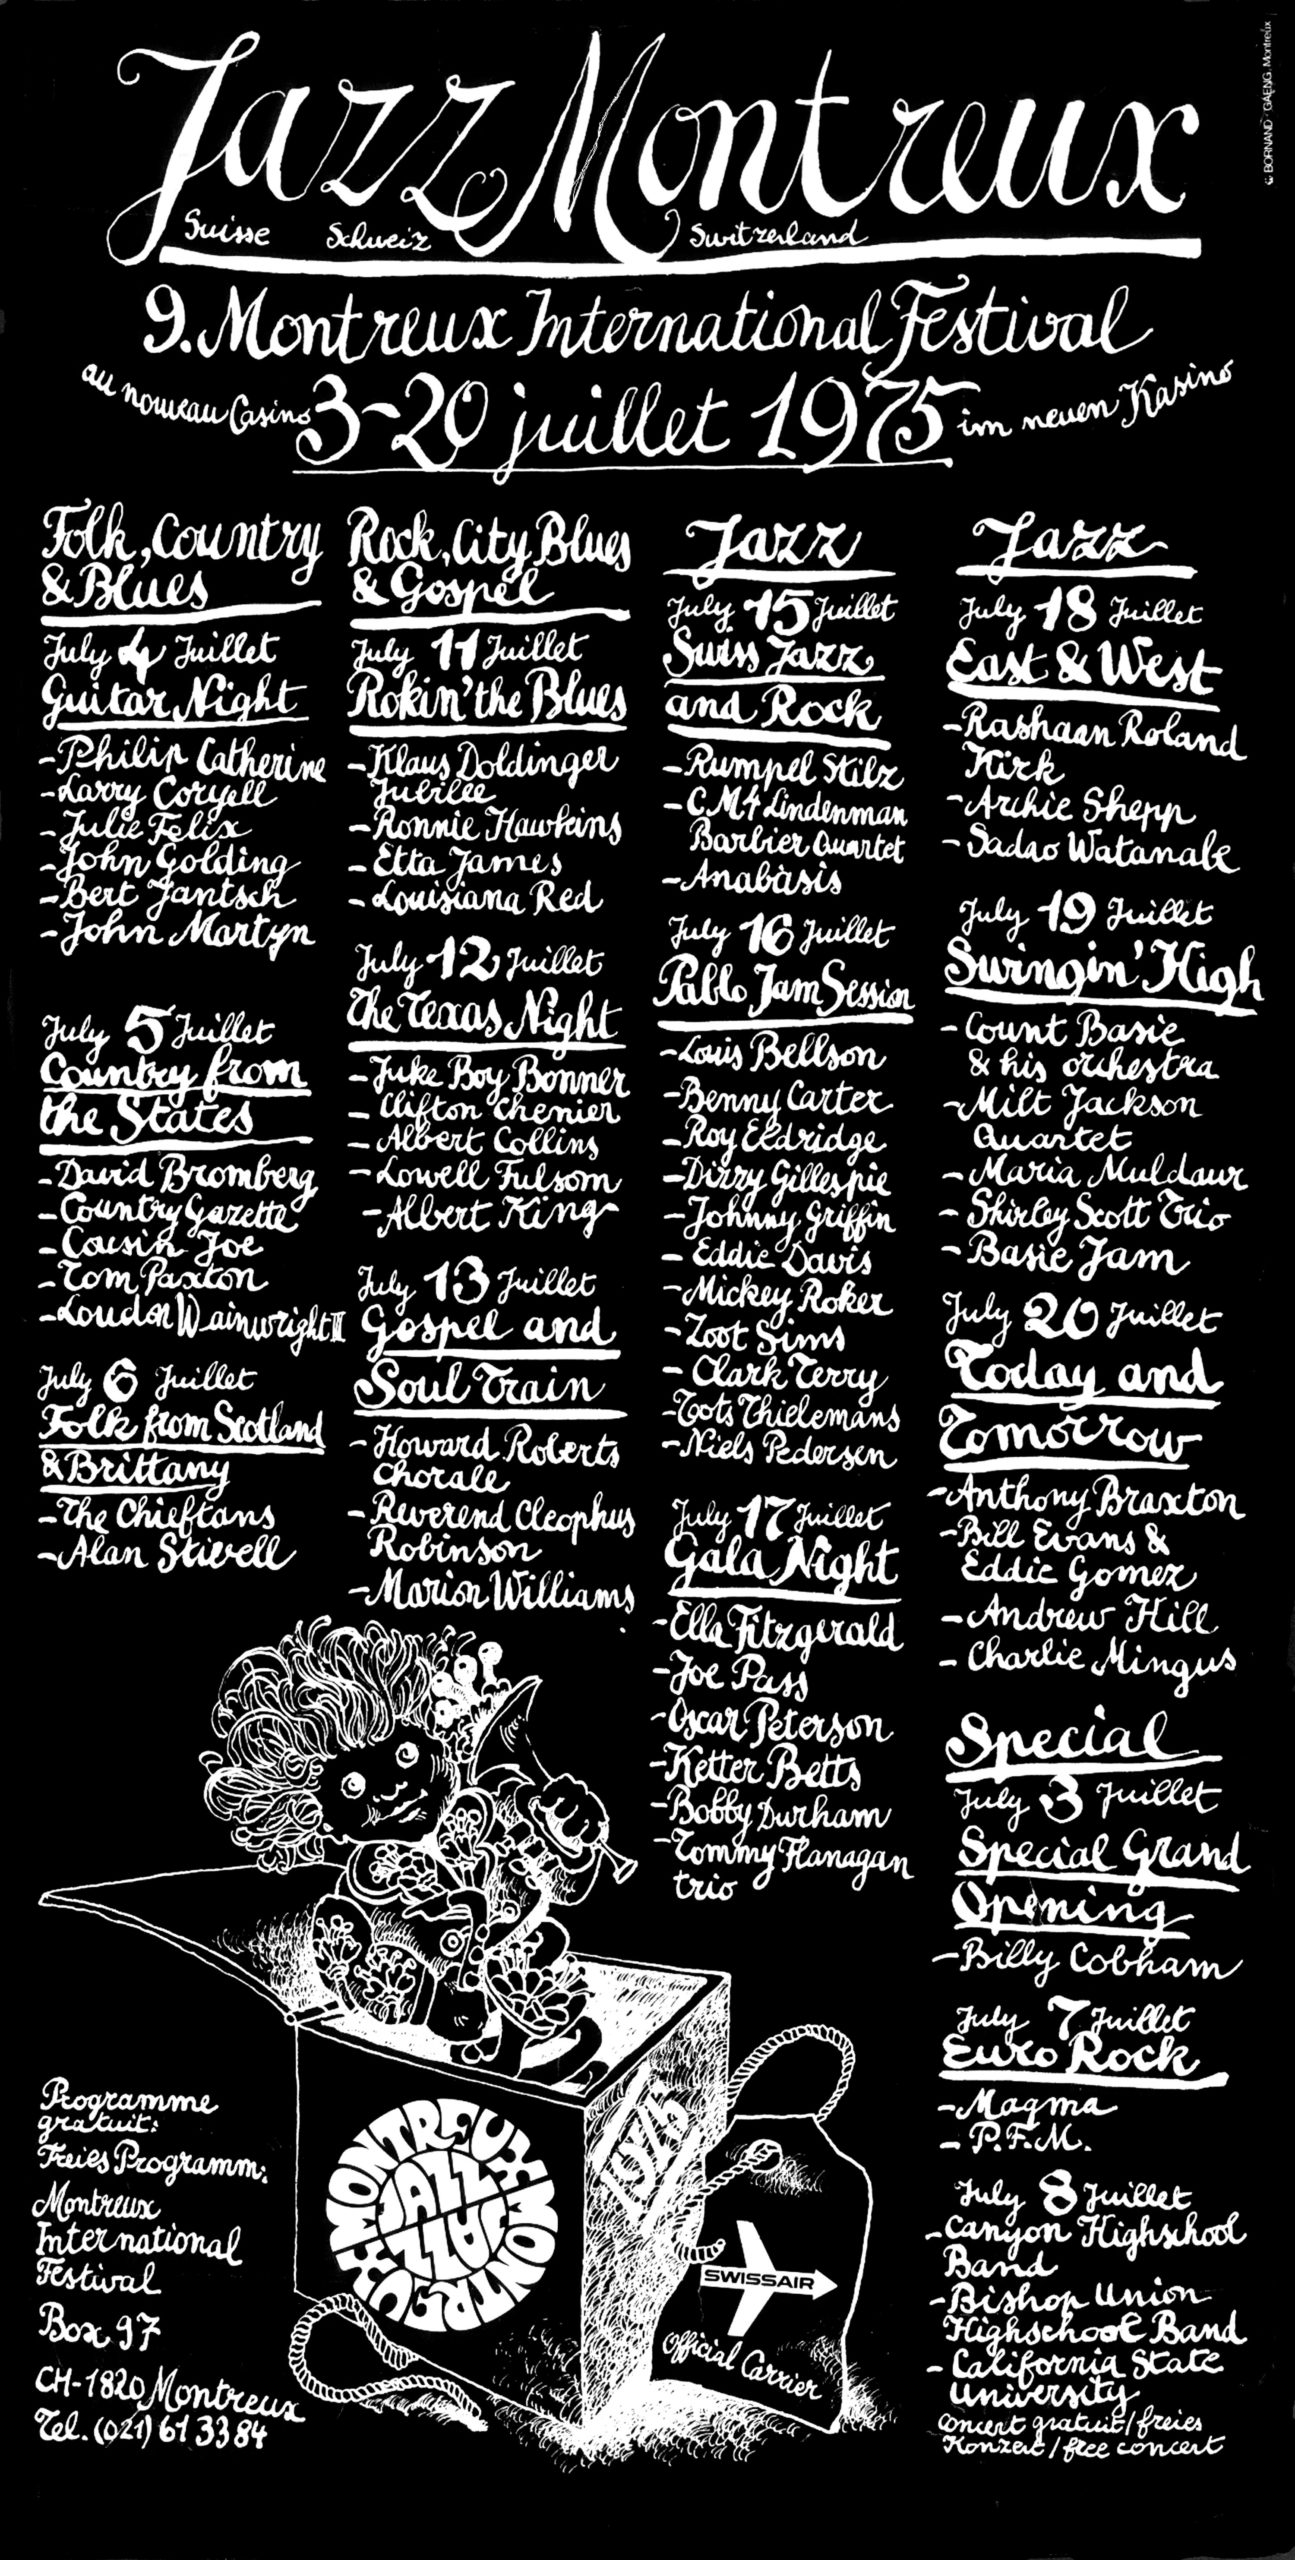 © BORNAND-GAENG, Montreux
Jazz Montreux
Suisse Schweiz Switzerland
9. Montreux International Festival
au nouveau Casino 3-20 juillet 1975 im neuen Kasino
Folk, Country
& Blues
July 4 Juillet
Guitar Night
-Philip Catherine
-Larry Coryell
-Julie Felix
-John Golding
-Bert Jantsch
-John Martyn
July 5 Juillet
Country from
the States
-David Bromberg
-Country Gazette
-Cousin Joe
-Tom Paxton
-Loudon Wainwright III
July 6 Juillet
Folk from Scotland
& Brittany
-The Chieftans
-Alan Stivell
Rock, City Blues
& Gospel
July 11 Juillet
Rokin' the Blues
-Klaus Doldinger
Jubilee
-Ronnie Hawkins
-Etta James
-Louisiana Red
July 12 Juillet
The Texas Night
-Juke Boy Bonner
- Clifton Chenier
- Albert Collins
-Lowell Fulsom
-Albert King
July 13 Juillet
Gospel and
Soul Train
-Howard Roberts
Chorale
-Reverend Cleophus
Robinson
-Marion Williams
Jazz
July 15 Juillet
Swiss Jazz
and Rock
-Rumpel Stilz
-C.M4 Lindenman
Barbier Quartet
-Anabasis
July 16 Juillet
Pablo Jam Session
-Louis Bellson
-Benny Carter
-Roy Eldridge
-Dizzy Gillespie
-Johnny Griffin
- Eddie Davis
-Mickey Roker
-Zoot Sims
- Clark Terry
-Toots Thielemans
-Niels Pedersen
July 17 Juillet
Gala Night
-Ella Fitzgerald
-Joe Pass
-Oscar Peterson
-Ketter Betts
-Bobby Durham
-Tommy Flanagan
trio
Jazz
July 18 Juillet
East & West
-Rashaan Roland
Kirk
-Archie Shepp
-Sadao Watanabe
July 19 Juillet
Swingin' High
-Count Basie
& his orchestra
-Milt Jackson
Quartet
-Maria Muldaur
-Shirley Scott Trio
-Basie Jam
July 20 Juillet
Today and
Tomorrow
-Anthony Braxton
-Bill Evans &
Eddie Gomez
-Andrew Hill
- Charlie Mingus
Special
July 3 Juillet
Special Grand
Opening
-Billy Cobham
July 7 Juillet
Euro Rock
-Magma
- P.F.M.
July 8 Juillet
-Canyon Highschool
Band
-Bishop Union
Highschool Band
-California State
University
concert gratuit/freies
Konzert/free concert
Programme
gratuit:
Freies Programm:
Montreux
International
Festival
Box 97
CH-1820 Montreux
Tel. (021) 61 33 84
MONTREUX MONTREUX
JAZZ
JAZZ
1975
SWISSAIR
Official Carrier